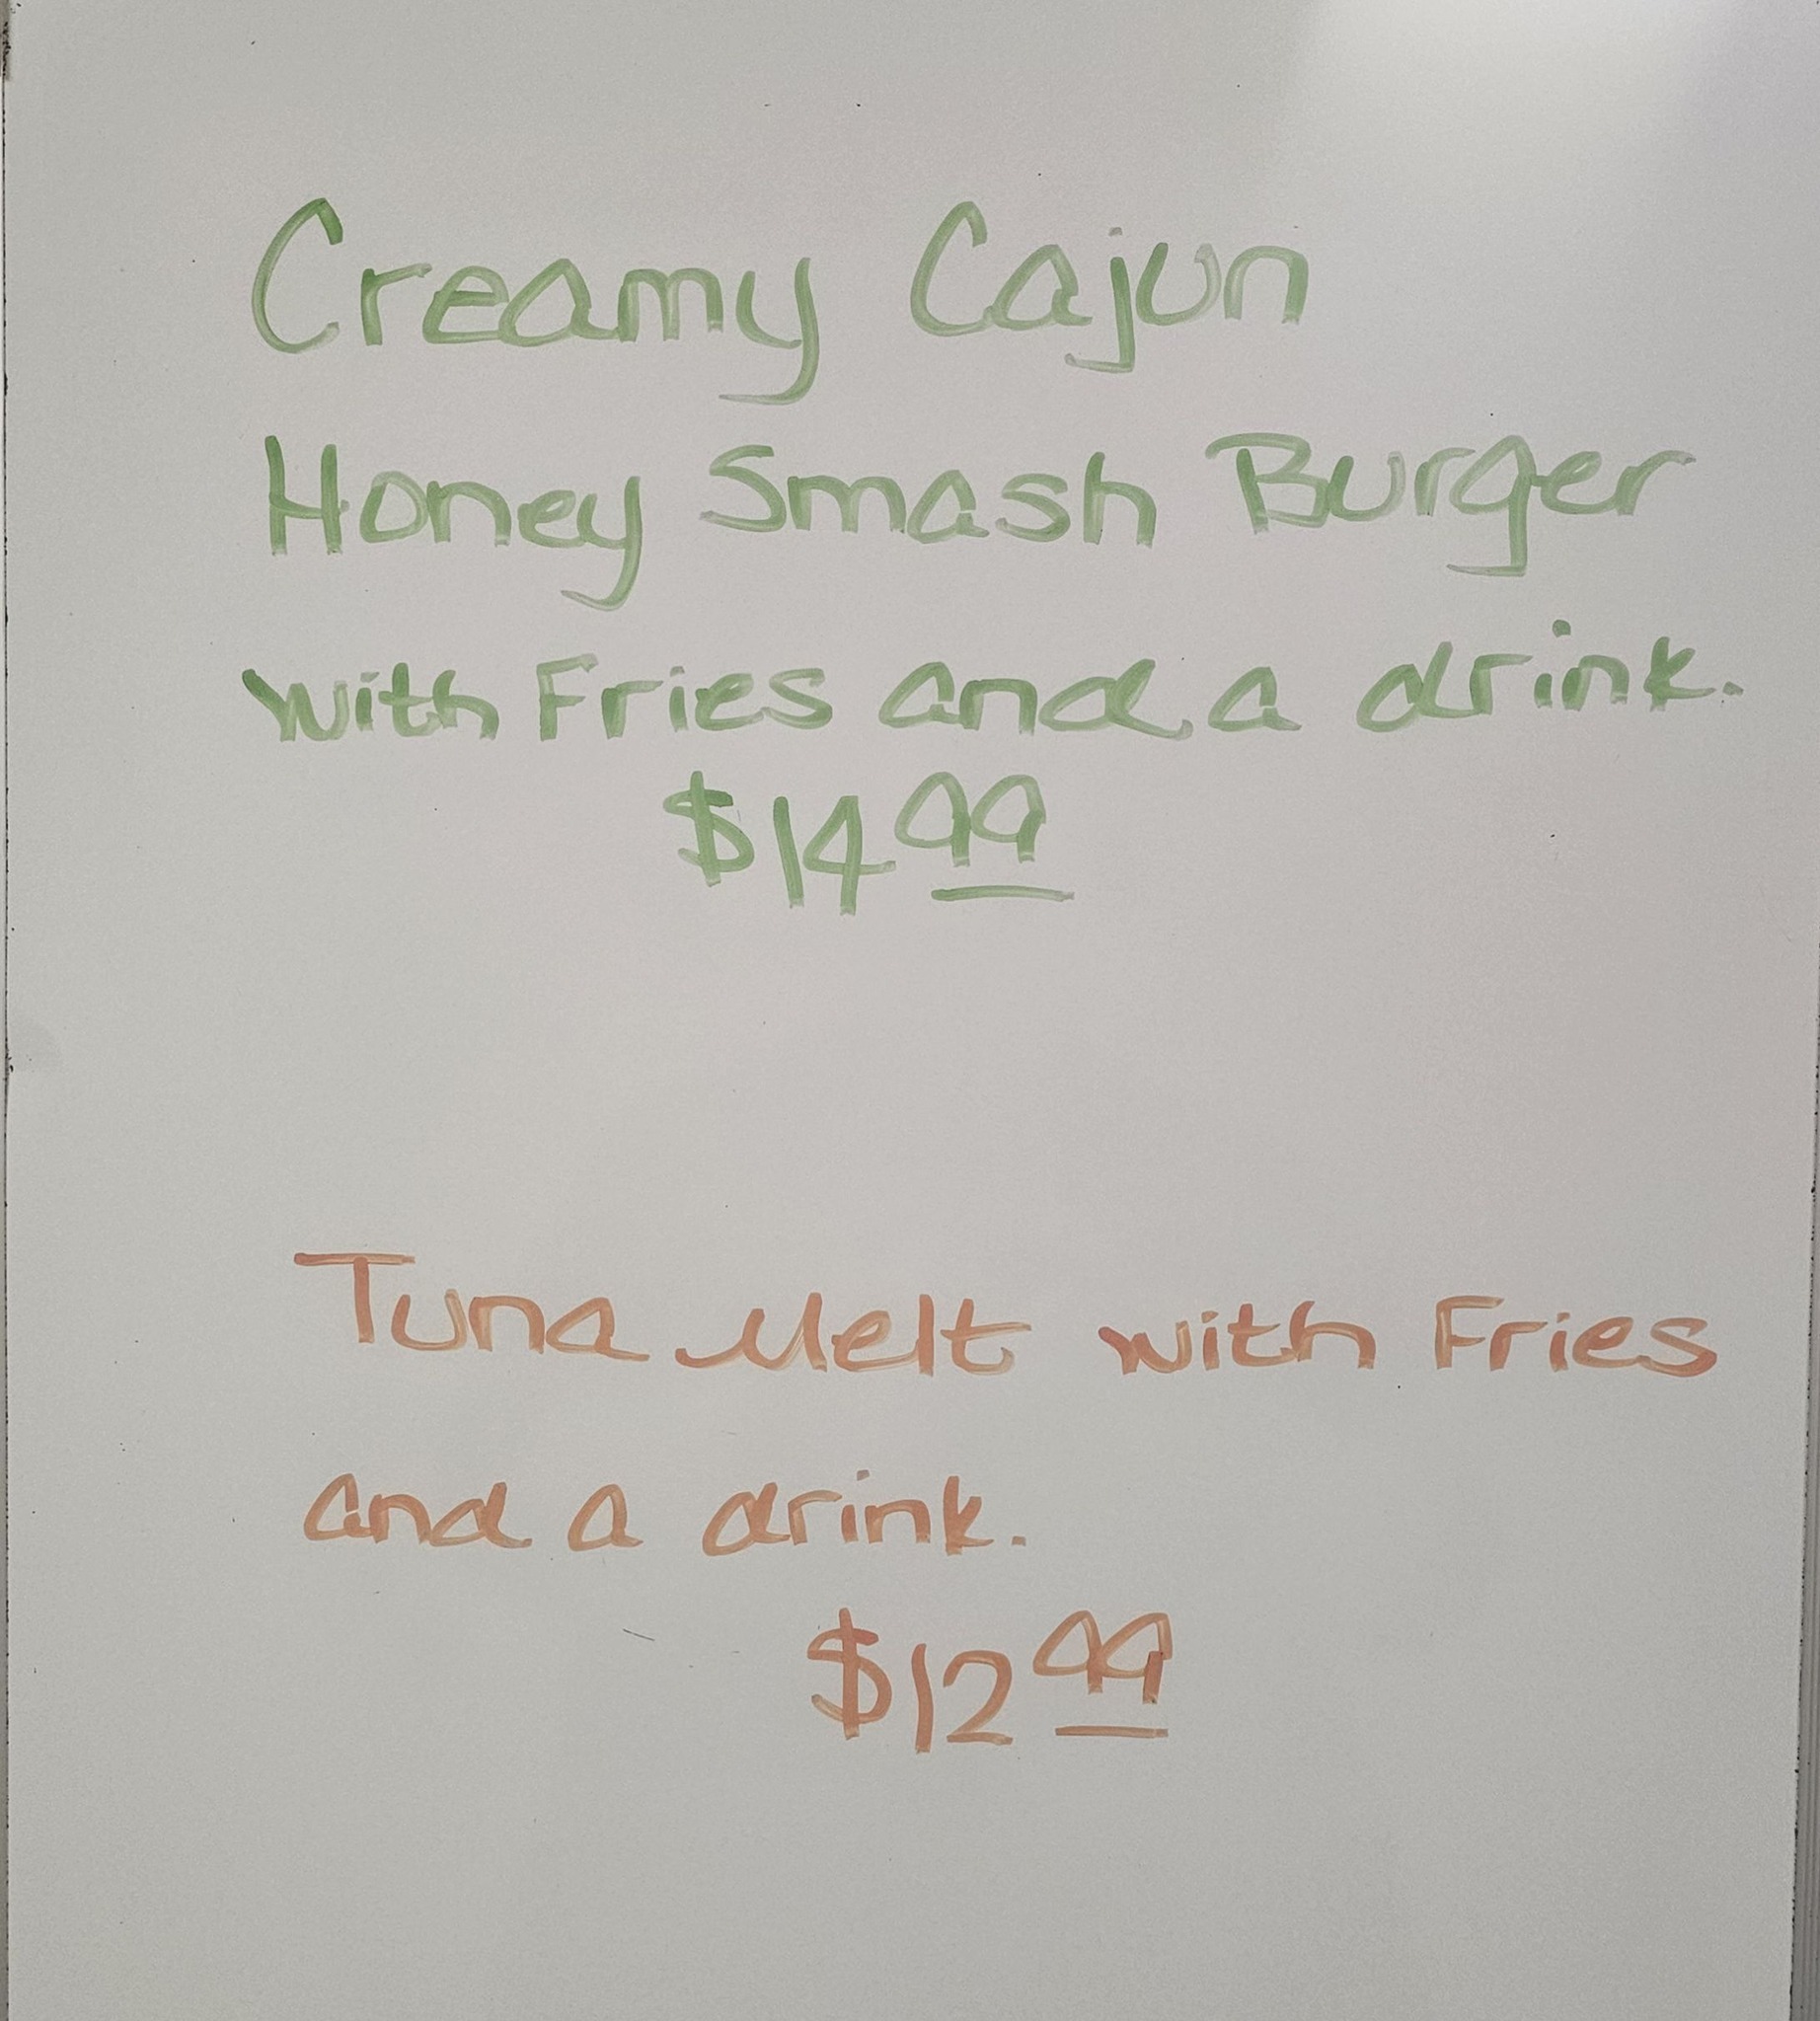 Creamy Cajun
Honey Smash Burger
with Fries and a drink.
$14 99
Tuna Melt with Fries
and a drink.
$12 99